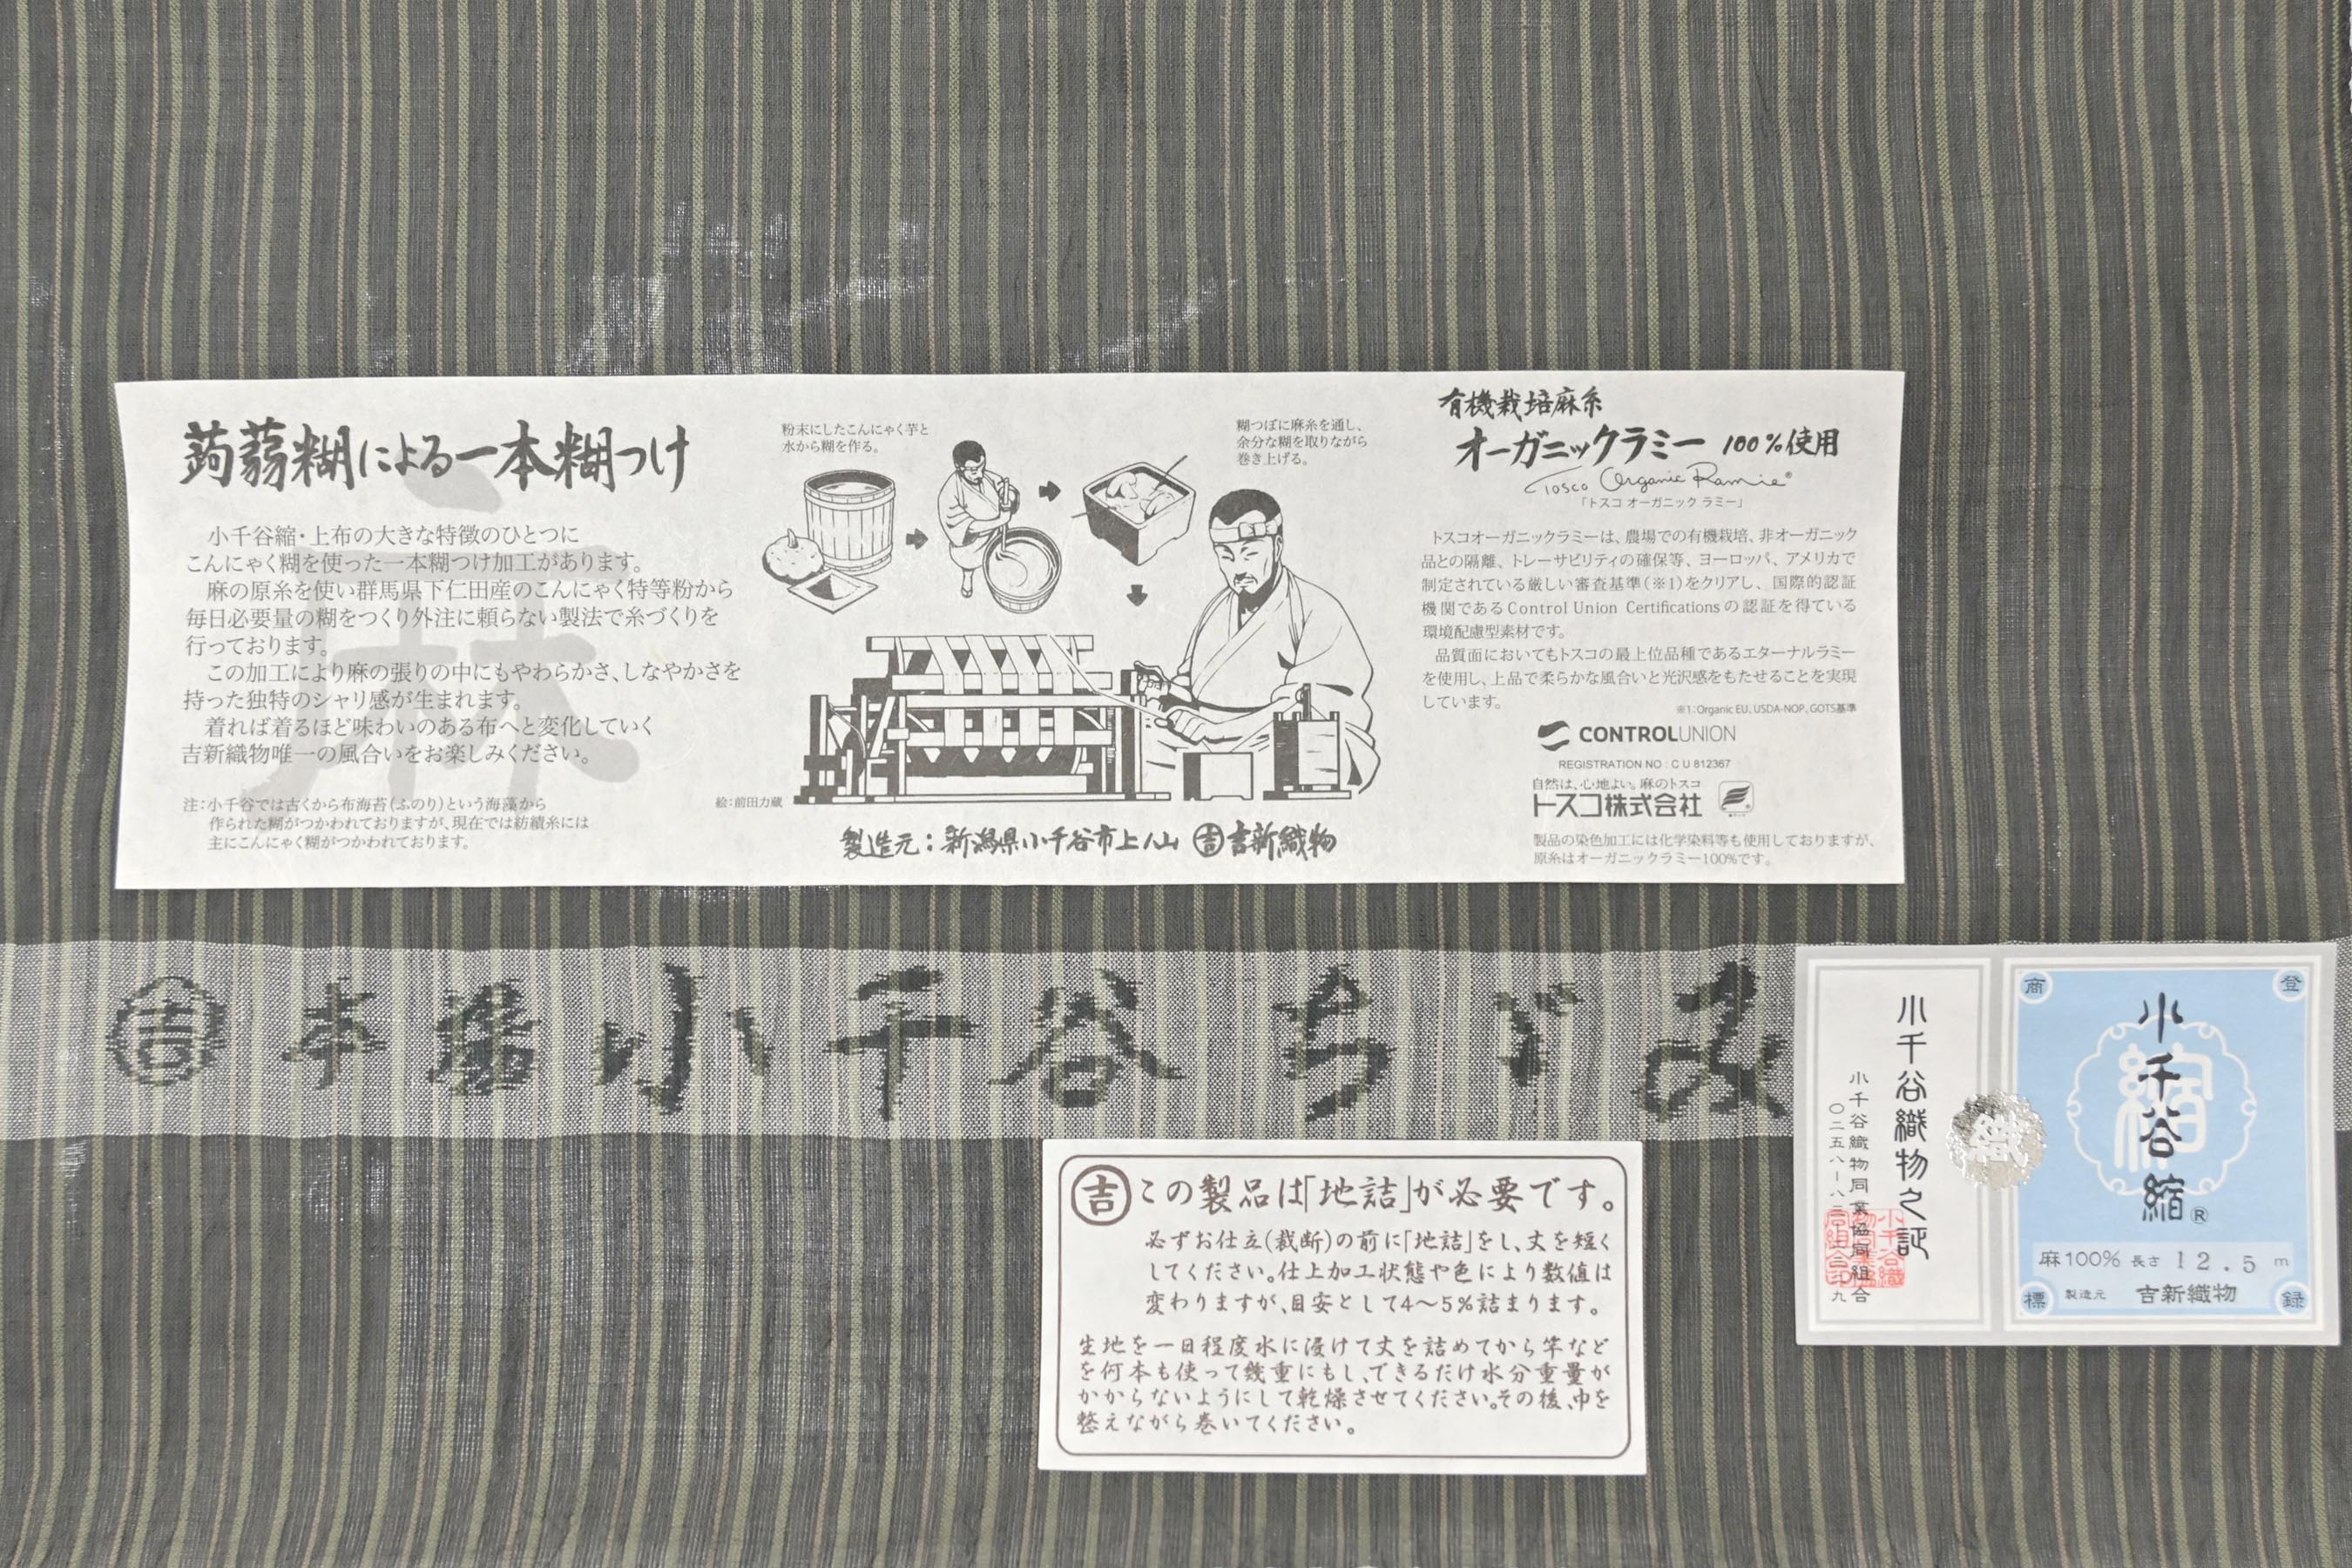 蒟蒻糊による一本糊つけ
小千谷縮・上布の大きな特徴のひとつに
こんにゃく糊を使った一本糊つけ加工があります。
麻の原糸を使い群馬県下仁田産のこんにゃく特等粉から
毎日必要量の糊をつくり外注に頼らない製法で糸づくりを
行っております。
この加工により麻の張りの中にもやわらかさ、しなやかさを
持った独特のシャリ感が生まれます。
着れば着るほど味わいのある布へと変化していく
吉新織物唯一の風合いをお楽しみください。
麻
注:小千谷では古くから布海苔(ふのり)という海藻から
作られた糊がつかわれておりますが、現在では紡績糸には
主にこんにゃく糊がつかわれております。
粉末にしたこんにゃく芋と
水から糊を作る。
糊つぼに麻糸を通し、
余分な糊を取りながら
巻き上げる。
絵:前田力蔵
製造元:新潟県小千谷市上ノ山 吉 吉新織物
有機栽培麻糸
オーガニックラミー 100%使用
Tosco Organic Ramie®
「トスコ オーガニック ラミー」
トスコオーガニックラミーは、農場での有機栽培、非オーガニック
品との隔離、トレーサビリティの確保等、ヨーロッパ、アメリカで
制定されている厳しい審査基準(※1)をクリアし、国際的認証
機関であるControl Union Certificationsの認証を得ている
環境配慮型素材です。
品質面においてもトスコの最上位品種であるエターナルラミー
を使用し、上品で柔らかな風合いと光沢感をもたせることを実現
しています。
※1:Organic EU、USDA-NOP、GOTS基準
CONTROLUNION
REGISTRATION NO : C U 812367
自然は、心地よい。麻のトスコ
トスコ株式会社
製品の染色加工には化学染料等も使用しておりますが、
原糸はオーガニックラミー100%です。
吉 本場小千谷ちぢみ
吉 この製品は「地詰」が必要です。
必ずお仕立(裁断)の前に「地詰」をし、丈を短く
してください。仕上加工状態や色により数値は
変わりますが、目安として4〜5%詰まります。
生地を一日程度水に浸けて丈を詰めてから竿など
を何本も使って幾重にもし、できるだけ水分重量が
かからないようにして乾燥させてください。その後、巾を
整えながら巻いてください。
小千谷織物之証
小千谷織物同業協同組合
織
登
録
商
標
縮
小千谷縮®
麻100% 長さ 12.5 m
製造元 吉新織物